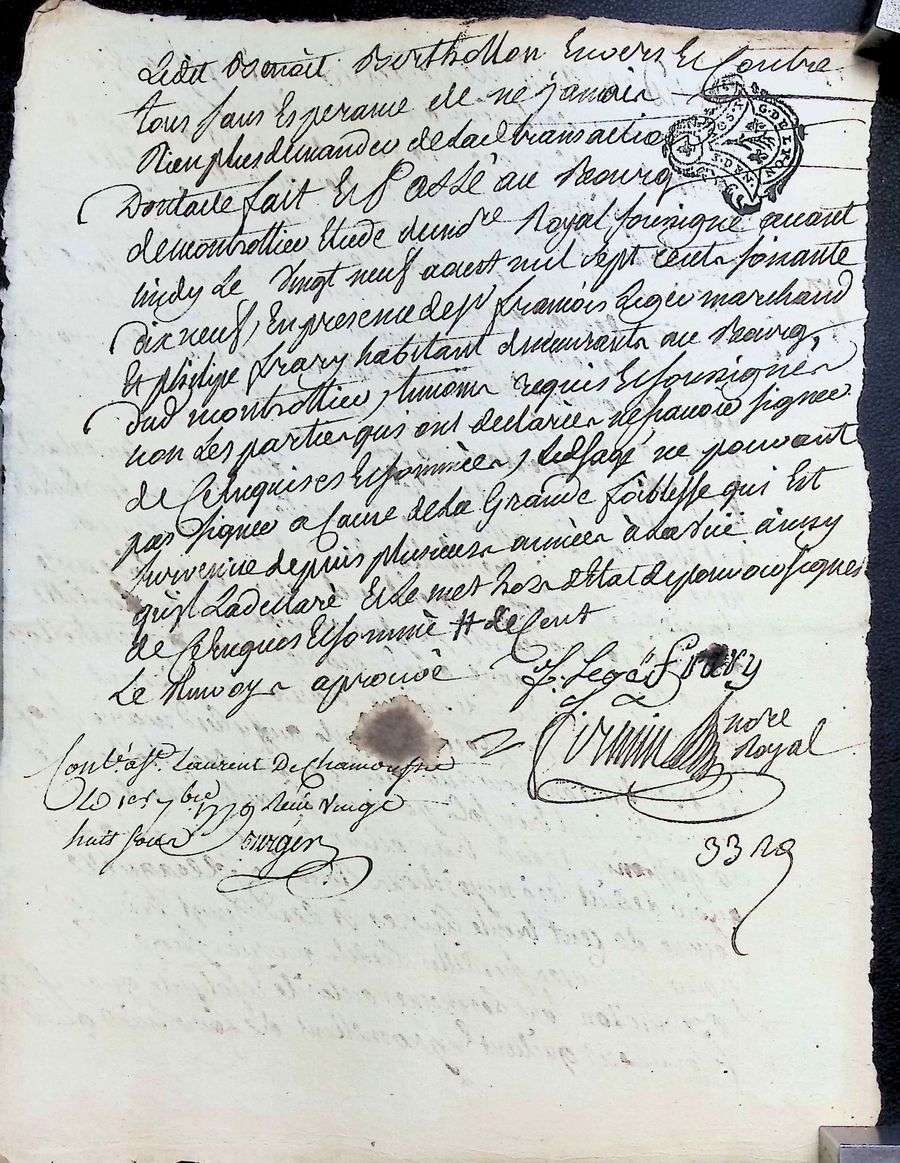 Ledit Benoit Berthollon Envers Et Contre
tous sans Esperance de ne jamais
Rien plus demander de Lad transaction
Dontacte fait Et Passé au Bourg
de montrottier Etude dunore Royal soussigné avant
midy Le vingt neuf aoust mil sept cents soixante
dix neuf, En presence de sr francois Leger marchand
Et philipe frary habitant demeurants au Bourg
dud montrottier, temoins requis Et soussignés
non Les parties qui ont declarées ne scavoir signer
de Ce Enquises Et sommées, Led sage ne pouvant
pas signer a Cause de La Grande foiblesse qui Est
survenue depuis plusieurs années à La vüe ainsy
quil La declaré Et Le met hors d'Etat de pouvoir signer
de Ce Enquis Et sommé # de Cent
Le Renvoy aprouvé
F. Legé Frary
Cirmin nore
Royal
Contlé à St. Laurent De Chamousset
Le 1er 7bre 1779 Reçu vingt
huit sous
3329
G. DE LYON